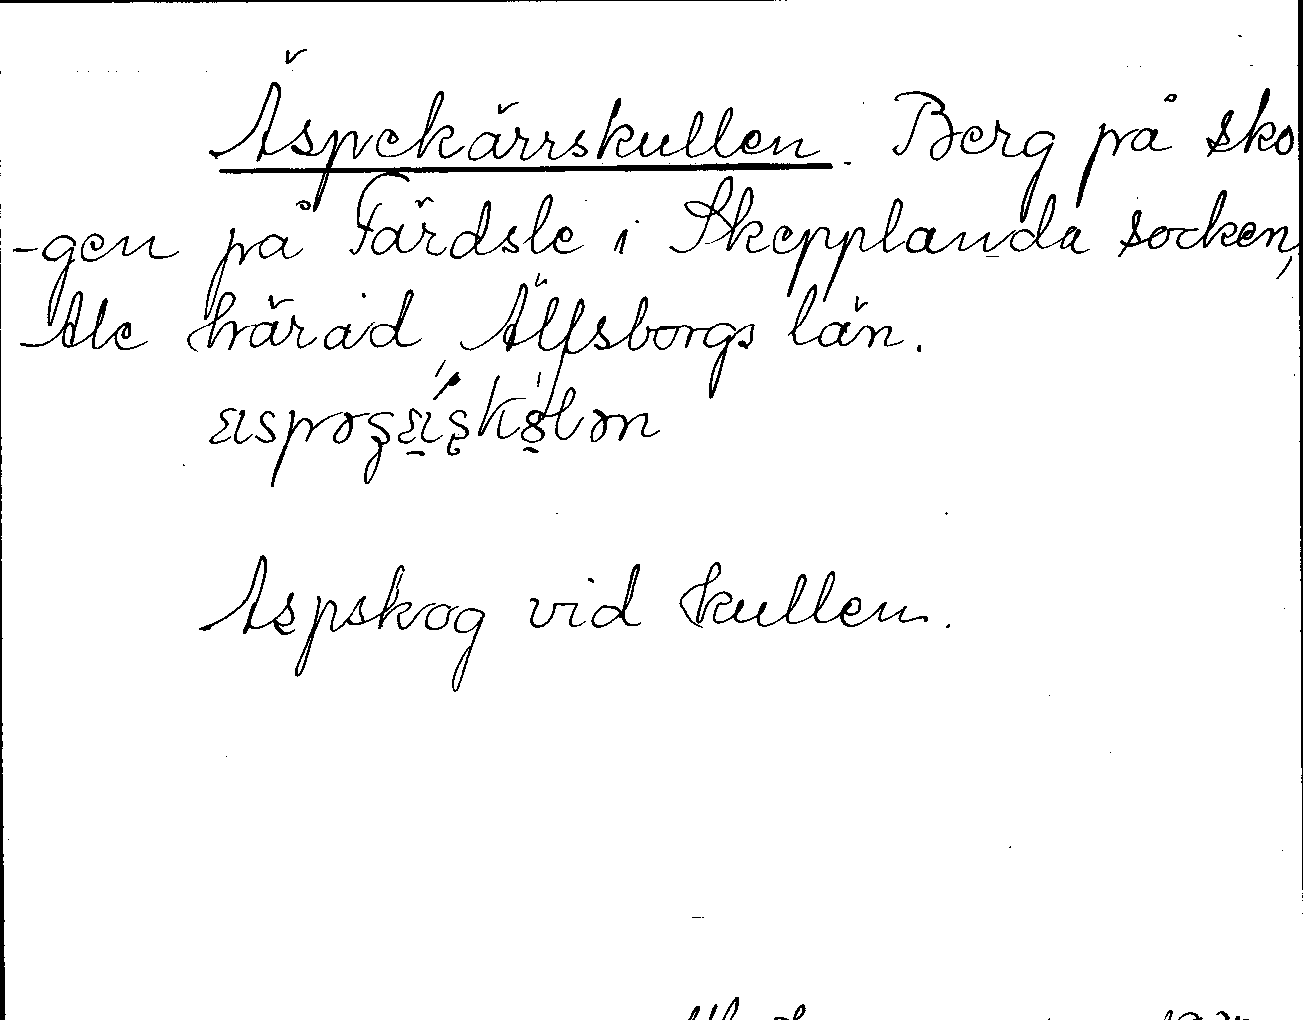 Äspekärrskullen. Berg på sko
-gen på Färdsle i Skepplanda socken,
Ale härad, Älfsborgs län.
Aspskog vid kullen.